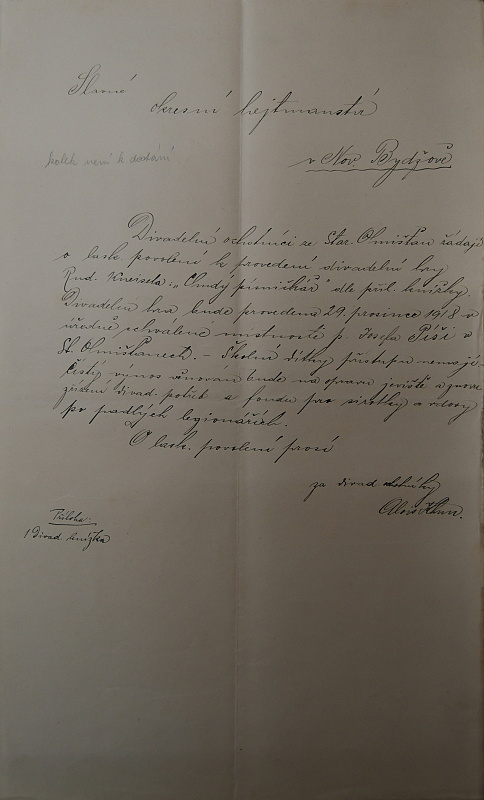 Slavné
okresní hejtmanství
kolek není k dostání
v Nov. Bydžově
Divadelní ochotníci ze Star. Smiřan žádají
o lask. povolení k provedení divadelní hry
Rud. Kneisela: „Chudý písničkář" dle přil. knížky.
Divadelní hra bude provedena 29. prosince 1918 v
úředně schválené místnosti p. Josefa Píši v
St. – Školní dítky přístupu nemají.
Čistý výnos věnován bude na opravu jeviště a
zřízení divad. potřeb a fondu pro sirotky a vdovy
po padlých legionářích.
O lask. povolení prosí
za divad. ochotníky
Alois
Příloha
1 Divad. knížka